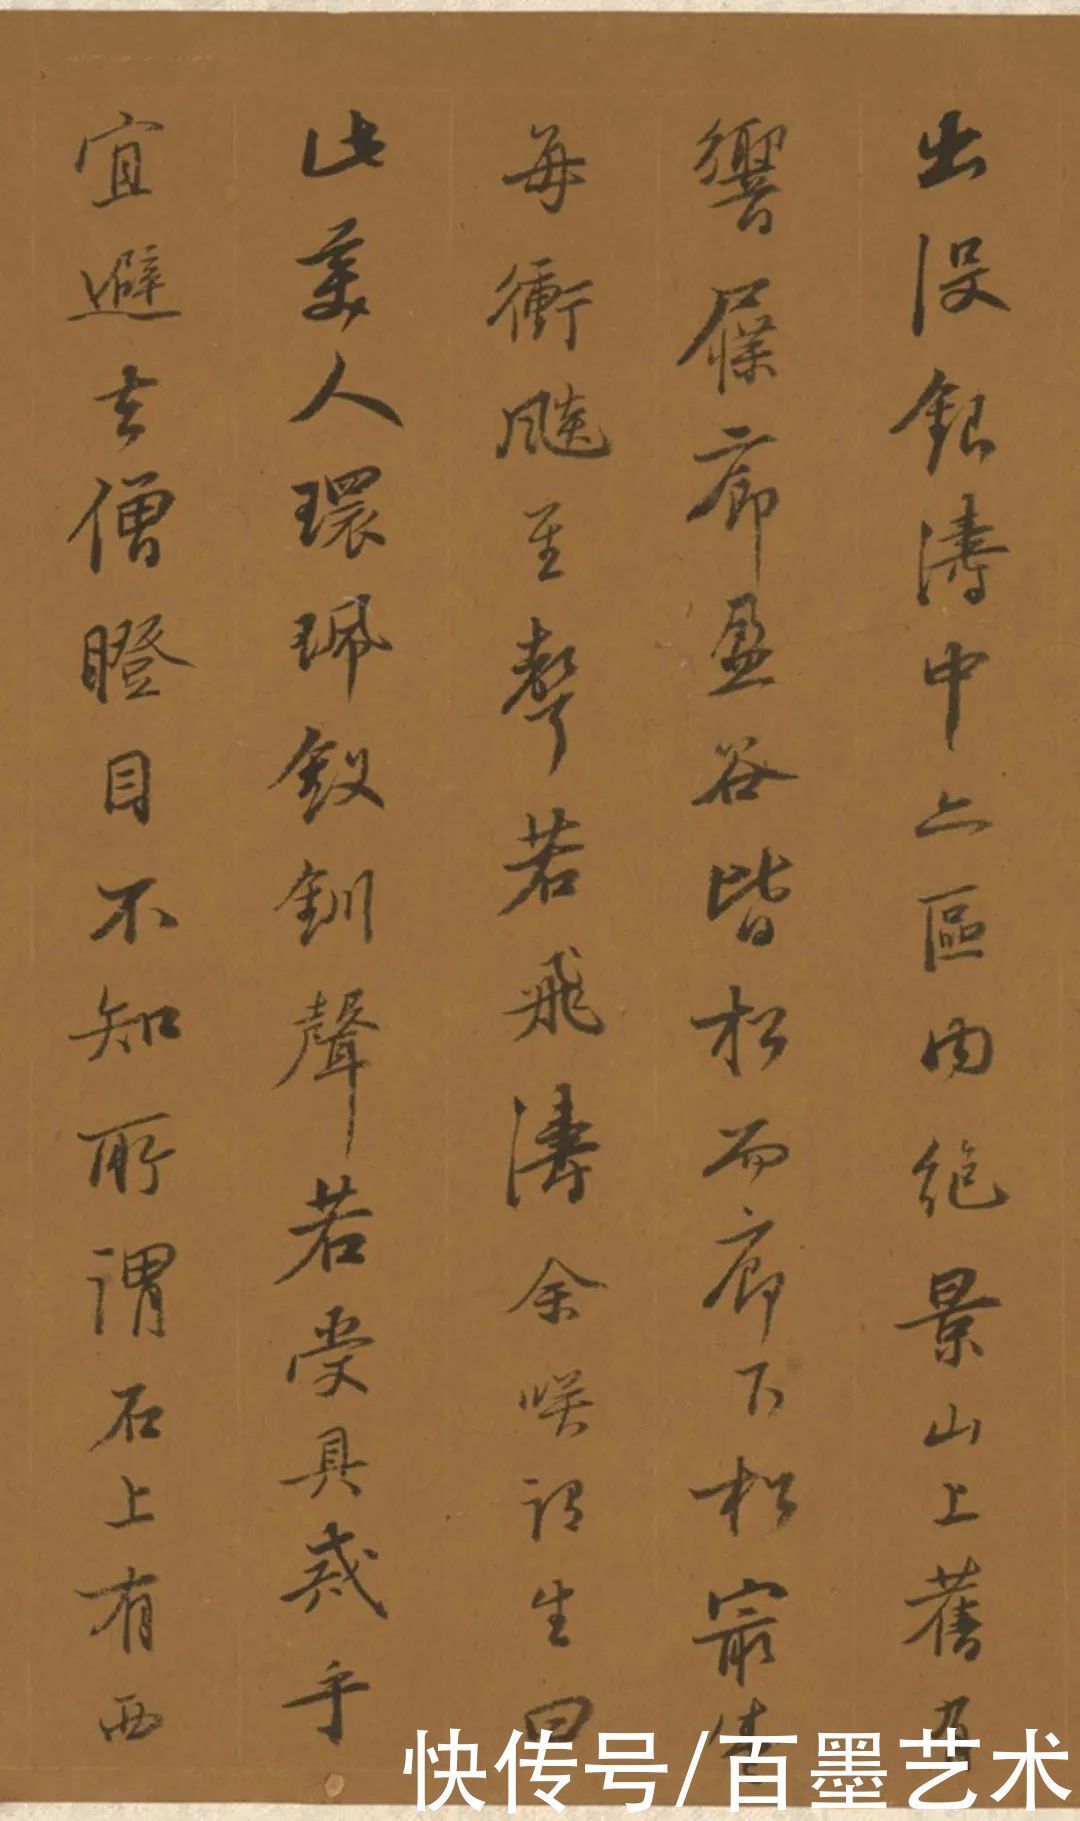 出沒銀濤中亦區内絶景山上舊有
響屧廊盈谷皆松而廊下松最
每衝飈至聲若飛濤余咲謂生曰
此美人環珮釵釧聲若受具戒乎
宜避去僧瞪目不知所謂石上有西
快传号/百墨艺术